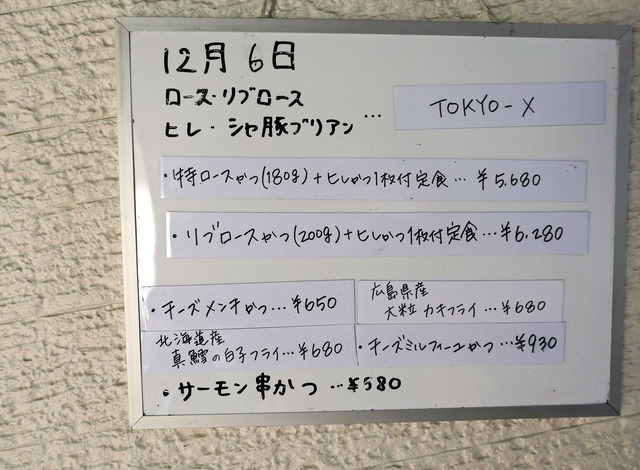 12月6日
ロース・リブロース
ヒレ・シャ豚ブリアン … TOKYO-X
・特ロースかつ(180g)+ヒレかつ1枚付定食…¥5,680
・リブロースかつ(200g)+ヒレかつ1枚付定食…¥6,280
・チーズメンチかつ…¥650
広島県産
大粒カキフライ…¥680
北海道産
真鱈の白子フライ…¥680
・チーズミルフィーユかつ…¥930
・サーモン串かつ…¥580